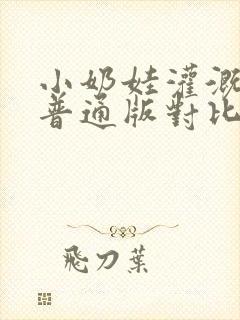 小奶娃灌溉
普通版對比
飛刀葉